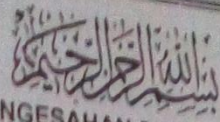 بسم الله الرحمن الرحيم
NGESAHAN